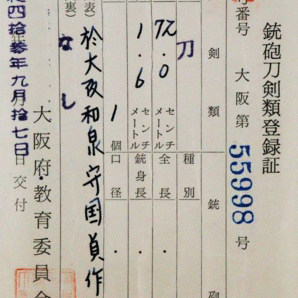 銃砲刀剣類登録証
記号番号 大阪第 55998 号
剣類 銃砲
種別 刀
全長 72.0 センチメートル
銃身長 1.6 センチメートル
口径 1個
(表) 於大阪和泉守国貞作
(裏) なし
四拾参年九月拾七日交付
大阪府教育委員会